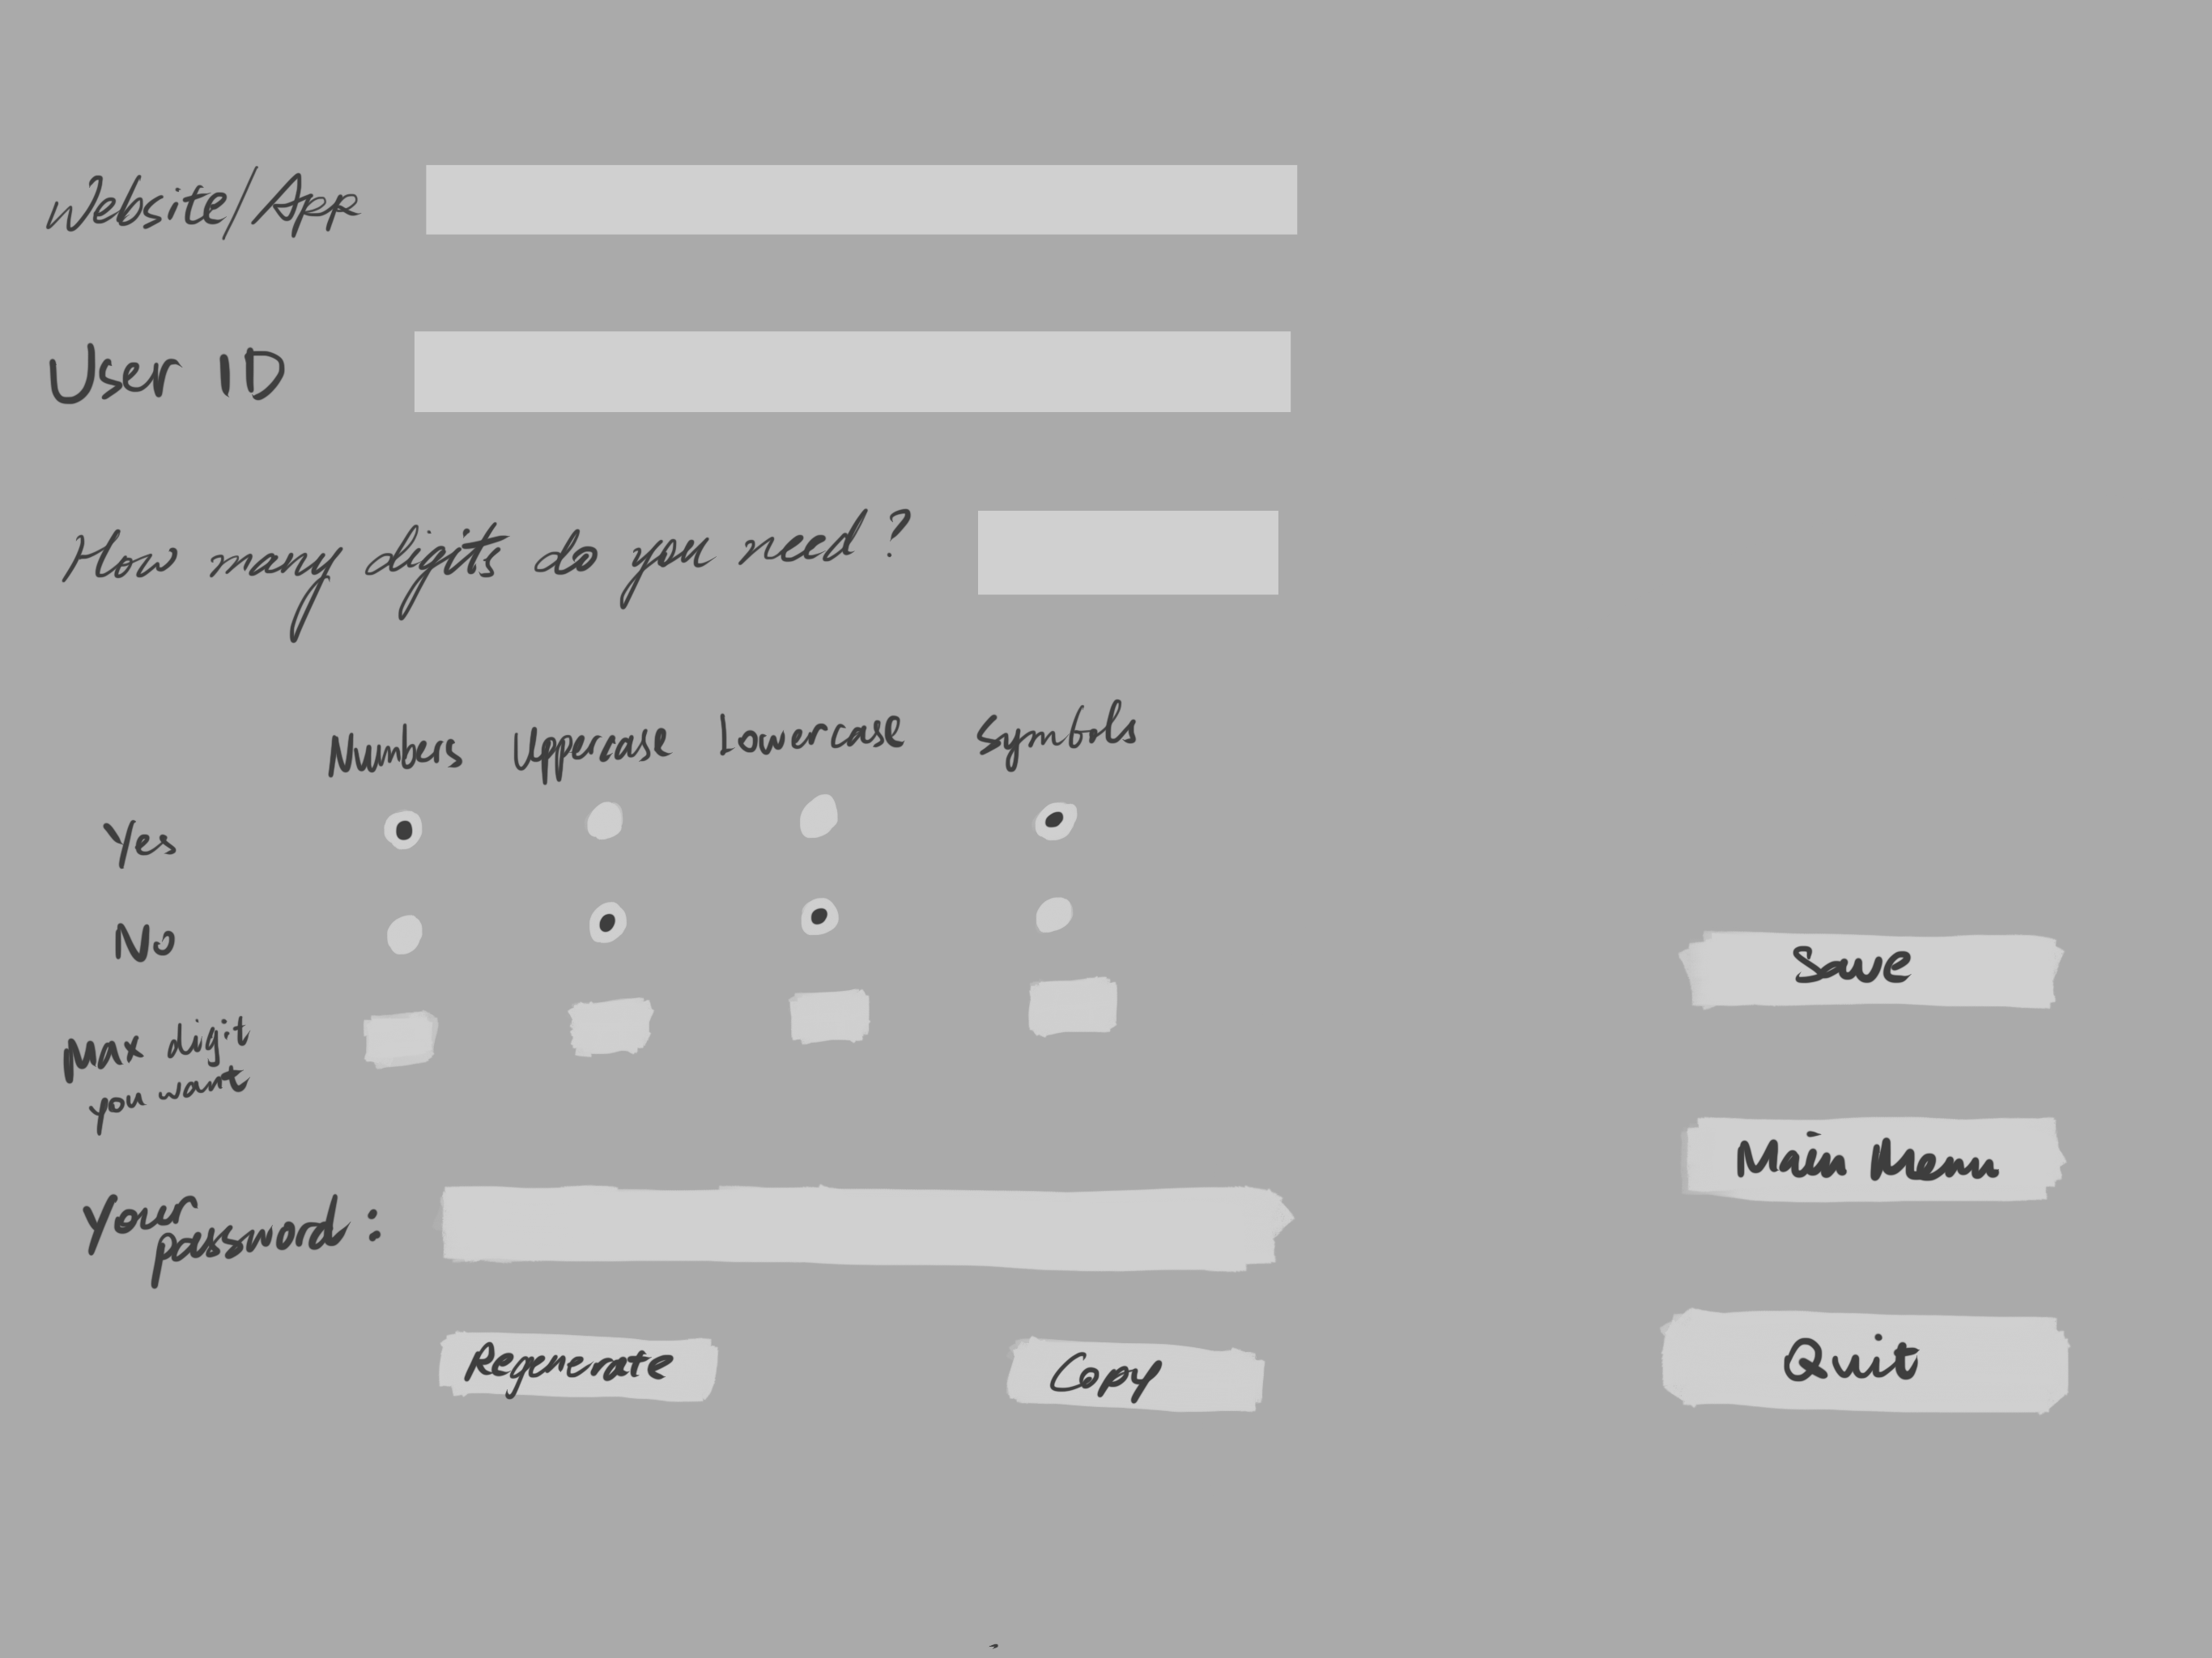 Website/App
User ID
How many digits do you need?
Numbers Uppercase Lowercase Symbols
Yes
No
Max digit
you want
Your
password:
Regenerate
Copy
Save
Main Menu
Quit